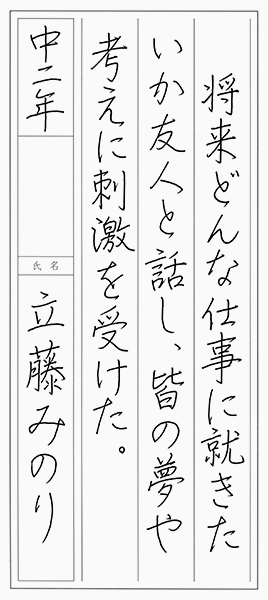 将来どんな仕事に就きた
いか友人と話し、皆の夢や
考えに刺激を受けた。
中二年
氏名
立藤みのり